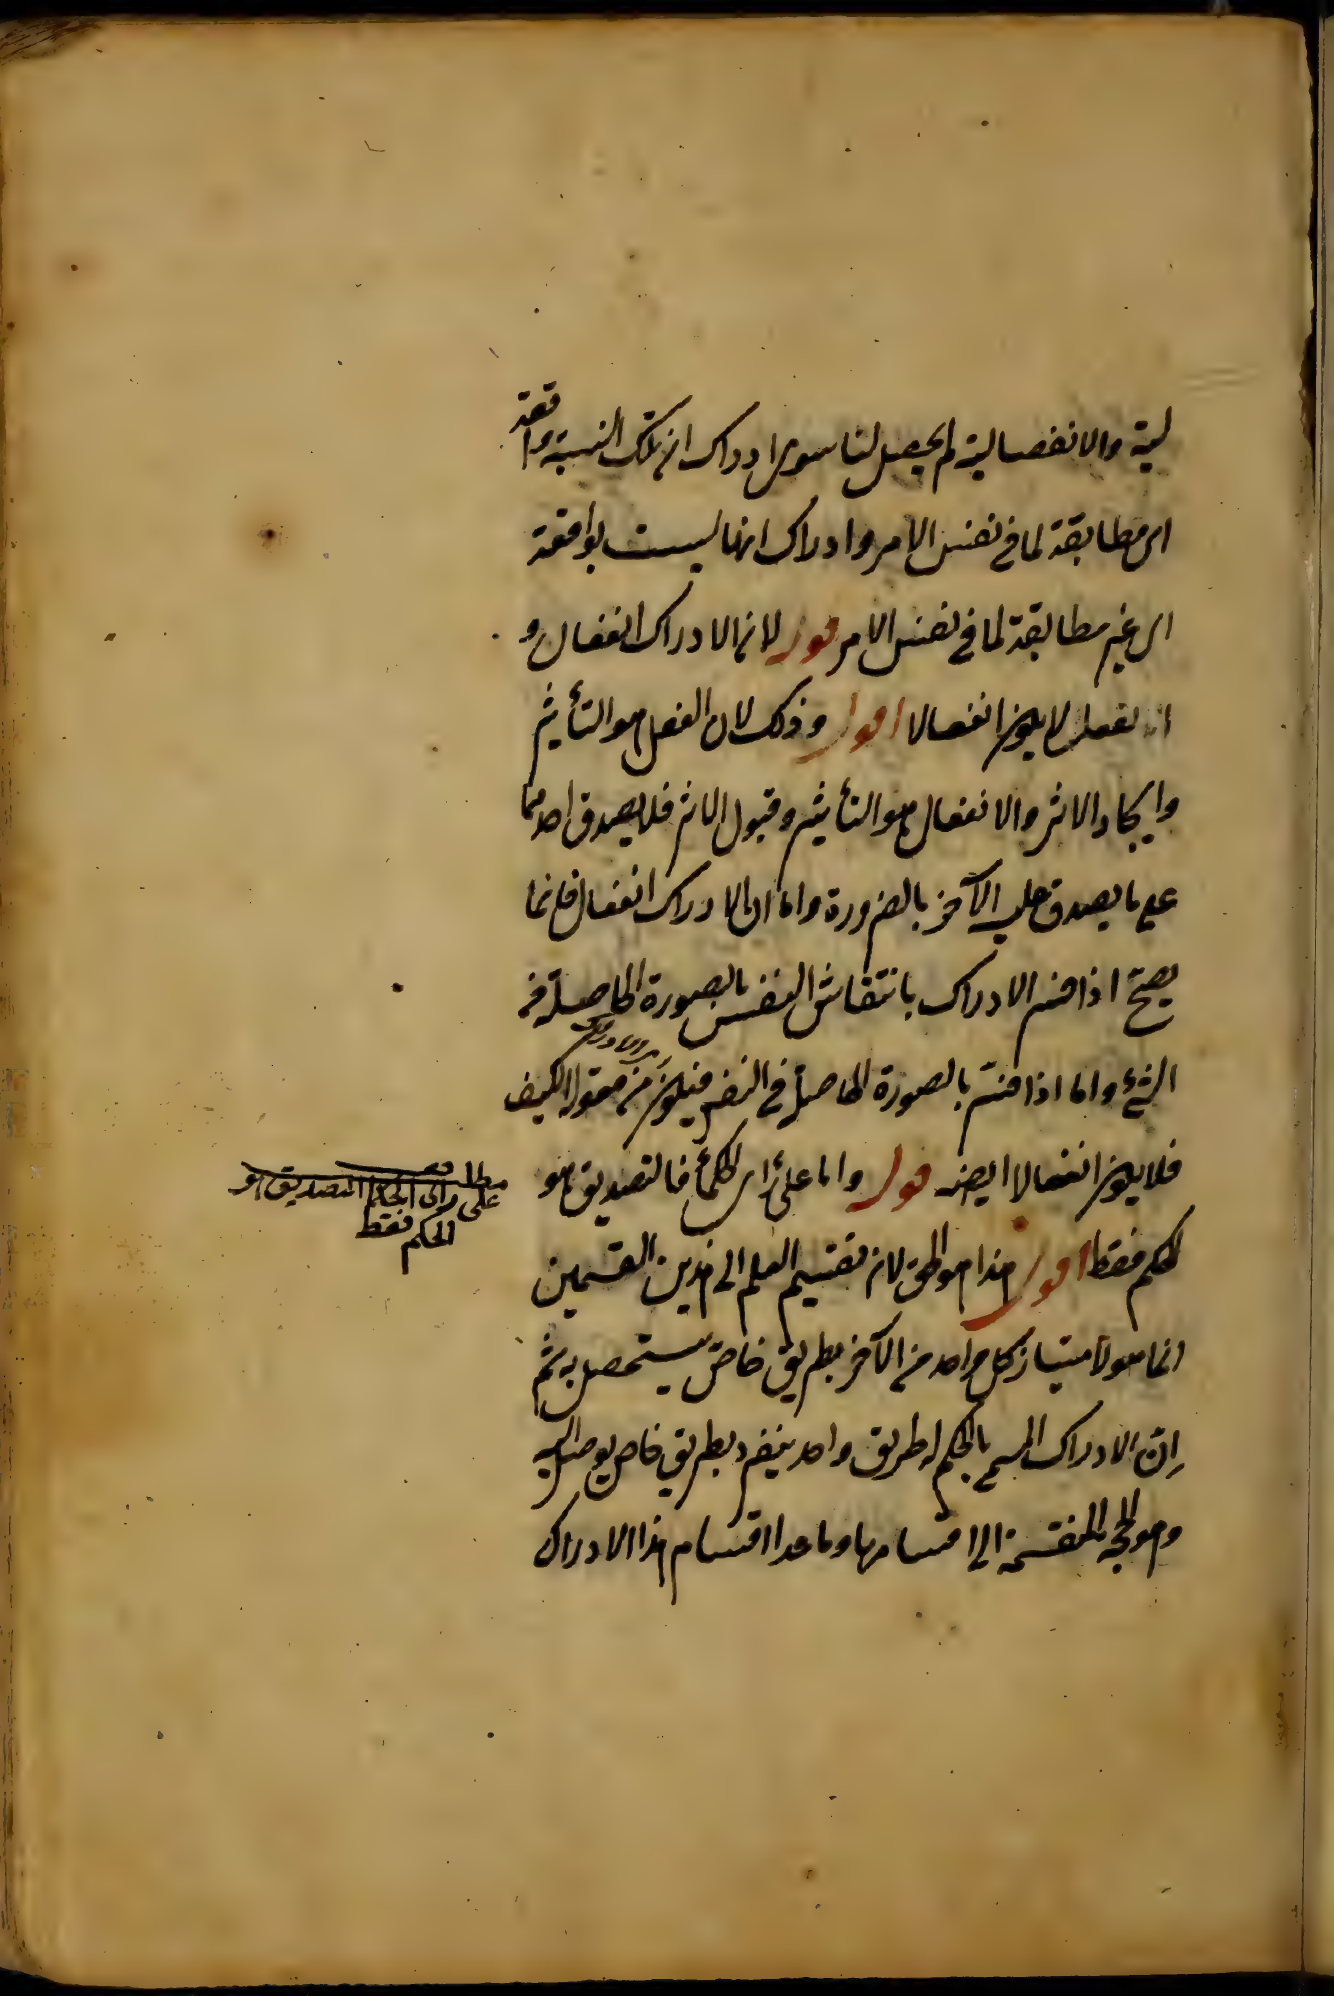 لية والانفصالية لم يحصل لنا سوى ادراك ان تلك النسبة واقعة
اى مطابقة لما فى نفس الامر وادراك انها ليست بواقعة
اى غير مطابقة لما فى نفس الامر قوله لان الادراك انفعال و
الفعل لا يكون انفعالا اقول وذلك لان الفعل هو التأثير
وايجاد الاثر والانفعال هو التأثير وقبول الاثر فلا يصدق احدهما
على ما يصدق عليه الآخر بالضرورة واما ان الادراك انفعال فانما
يصح اذا فسر الادراك بانتقاش النفس بالصورة الحاصلة من
الشئ واما اذا فسر بالصورة الحاصلة فى النفس فيكون من مقولة الكيف
فلا يكون انفعالا ايضا قوله واما على رأى الحكماء فالتصديق هو
الحكم فقط اقول هذا هو الحق لان تقسيم العلم الى هذين القسمين
انما هو لامتياز كل واحد من الآخر بطريق خاص يستحصل به ثم
ان الادراك المسمى بالحكم له طريق واحد ينفرد بطريق خاص يوصل اليه
وهو الحجة المنقسمة الى اقسامها وما عدا اقسام هذا الادراك
مطلب
على رأى الحكماء التصديق هو
الحكم فقط